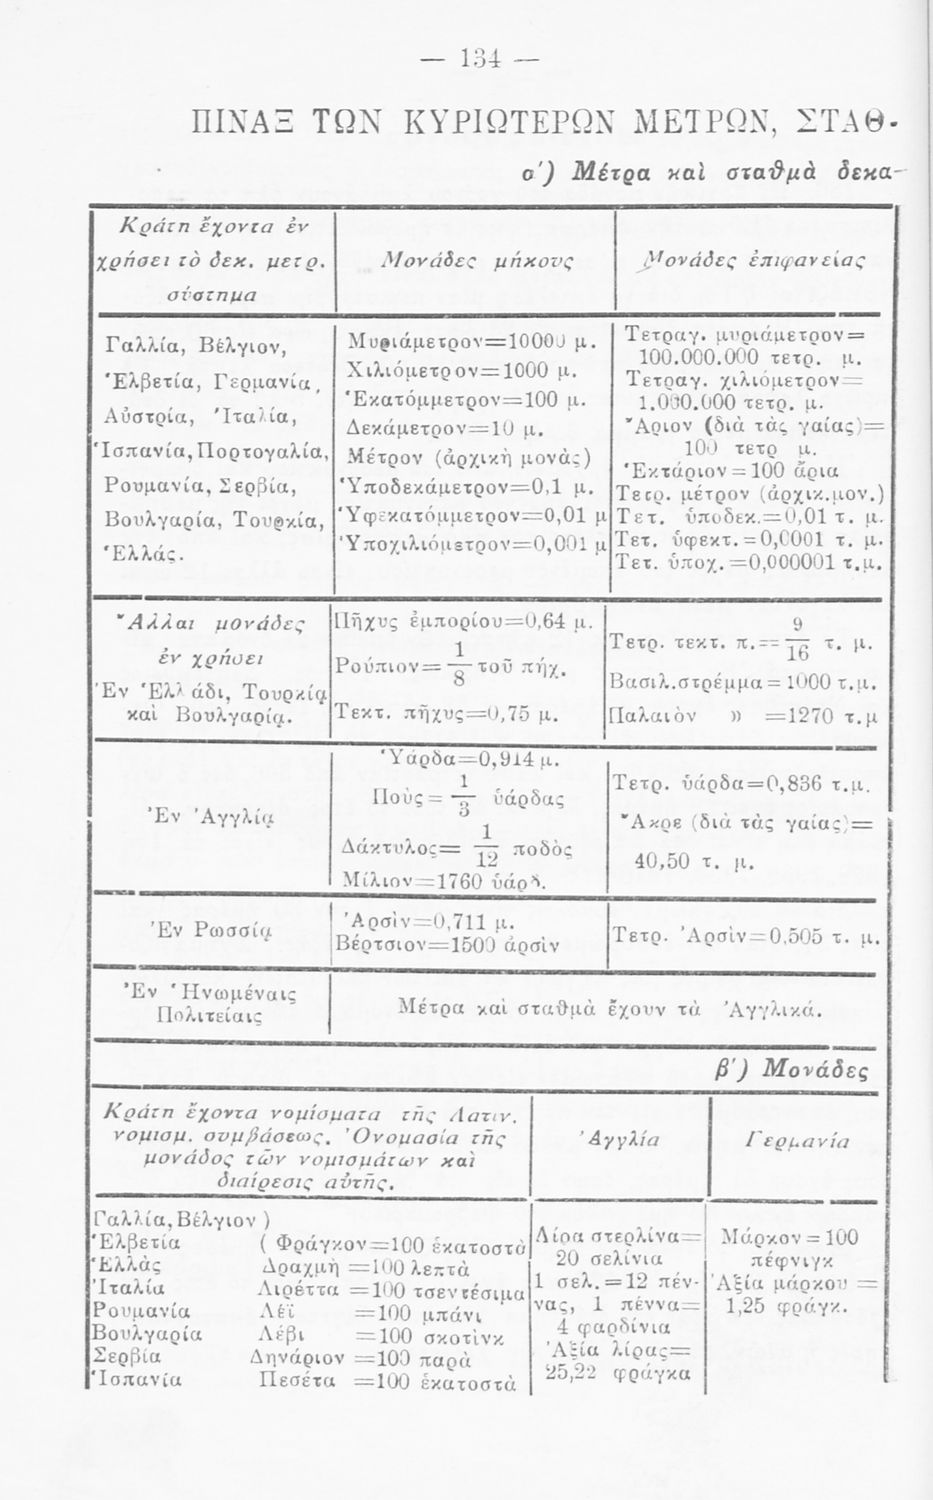 — 134 —
ΠΙΝΑΞ ΤΩΝ ΚΥΡΙΩΤΕΡΩΝ ΜΕΤΡΩΝ, ΣΤΑΘ-
α') Μέτρα καὶ σταθμὰ δεκα-
Κράτη ἔχοντα ἐν
χρήσει τὸ δεκ. μετρ.
σύστημα
Μονάδες μήκους
Μονάδες ἐπιφανείας
Γαλλία, Βέλγιον,
Ἑλβετία, Γερμανία,
Αὐστρία, Ἰταλία,
Ἱσπανία, Πορτογαλία,
Ρουμανία, Σερβία,
Βουλγαρία, Τουρκία,
Ἑλλάς.
Μυριάμετρον=10000 μ.
Χιλιόμετρον=1000 μ.
Ἑκατόμμετρον=100 μ.
Δεκάμετρον=10 μ.
Μέτρον (ἀρχικὴ μονὰς)
Ὑποδεκάμετρον=0,1 μ.
Ὑφεκατόμμετρον=0,01 μ
Ὑποχιλιόμετρον=0,001 μ
Τετραγ. μυριάμετρον=
100.000.000 τετρ. μ.
Τετραγ. χιλιόμετρον=
1.000.000 τετρ. μ.
Ἄριον (διὰ τὰς γαίας)=
100 τετρ μ.
Ἑκτάριον=100 ἄρια
Τετρ. μέτρον (ἀρχικ.μον.)
Τετ. ὑποδεκ.=0,01 τ. μ.
Τετ. ὑφεκτ.=0,0001 τ. μ.
Τετ. ὑποχ.=0,000001 τ.μ.
Ἄλλαι μονάδες
ἐν χρήσει
Ἐν Ἑλλάδι, Τουρκίᾳ
καὶ Βουλγαρίᾳ.
Πῆχυς ἐμπορίου=0,64 μ.
Ρούπιον= 1/8 τοῦ πήχ.
Τεκτ. πῆχυς=0,75 μ.
Τετρ. τεκτ. π.= 9/16 τ. μ.
Βασιλ.στρέμμα=1000 τ.μ.
Παλαιὸν » =1270 τ.μ
Ἐν Ἀγγλίᾳ
Ὑάρδα=0,914 μ.
Ποὺς= 1/3 ὑάρδας
Δάκτυλος= 1/12 ποδὸς
Μίλιον=1760 ὑάρδ.
Τετρ. ὑάρδα=0,836 τ.μ.
Ἄκρε (διὰ τὰς γαίας)=
40,50 τ. μ.
Ἐν Ρωσσίᾳ
Ἀρσὶν=0,711 μ.
Βέρτσιον=1500 ἀρσὶν
Τετρ. Ἀρσὶν=0,505 τ. μ.
Ἐν Ἡνωμέναις
Πολιτείαις
Μέτρα καὶ σταθμὰ ἔχουν τὰ Ἀγγλικά.
β') Μονάδες
Κράτη ἔχοντα νομίσματα τῆς Λατιν.
νομισμ. συμβάσεως. Ὀνομασία τῆς
μονάδος τῶν νομισμάτων καὶ
διαίρεσις αὐτῆς.
Ἀγγλία
Γερμανία
Γαλλία, Βέλγιον )
Ἑλβετία ( Φράγκον=100 ἑκατοστὰ
Ἑλλὰς Δραχμὴ =100 λεπτὰ
Ἰταλία Λιρέττα =100 τσεντέσιμα
Ρουμανία Λέϊ =100 μπάνι
Βουλγαρία Λέβι =100 σκοτίνκ
Σερβία Δηνάριον =100 παρὰ
Ἱσπανία Πεσέτα =100 ἑκατοστὰ
Λίρα στερλίνα=
20 σελίνια
1 σελ.=12 πέν-
νας, 1 πέννα=
4 φαρδίνια
Ἀξία λίρας=
25,22 φράγκα
Μάρκον=100
πέφνιγκ
Ἀξία μάρκου =
1,25 φράγκ.